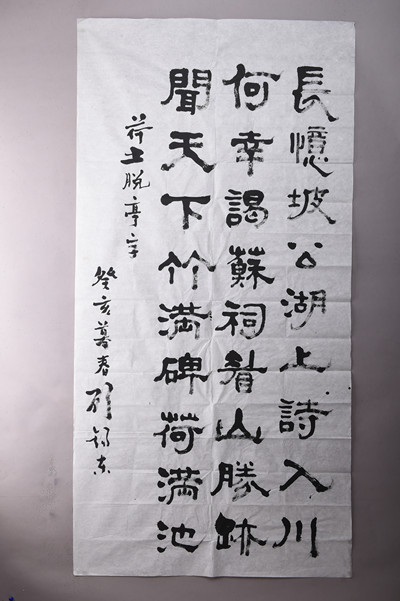 長憶坡公湖上詩入川
何幸謁蘇祠眉山勝跡
聞天下竹滿碑荷滿池
荷上脫亭字
癸亥暮春